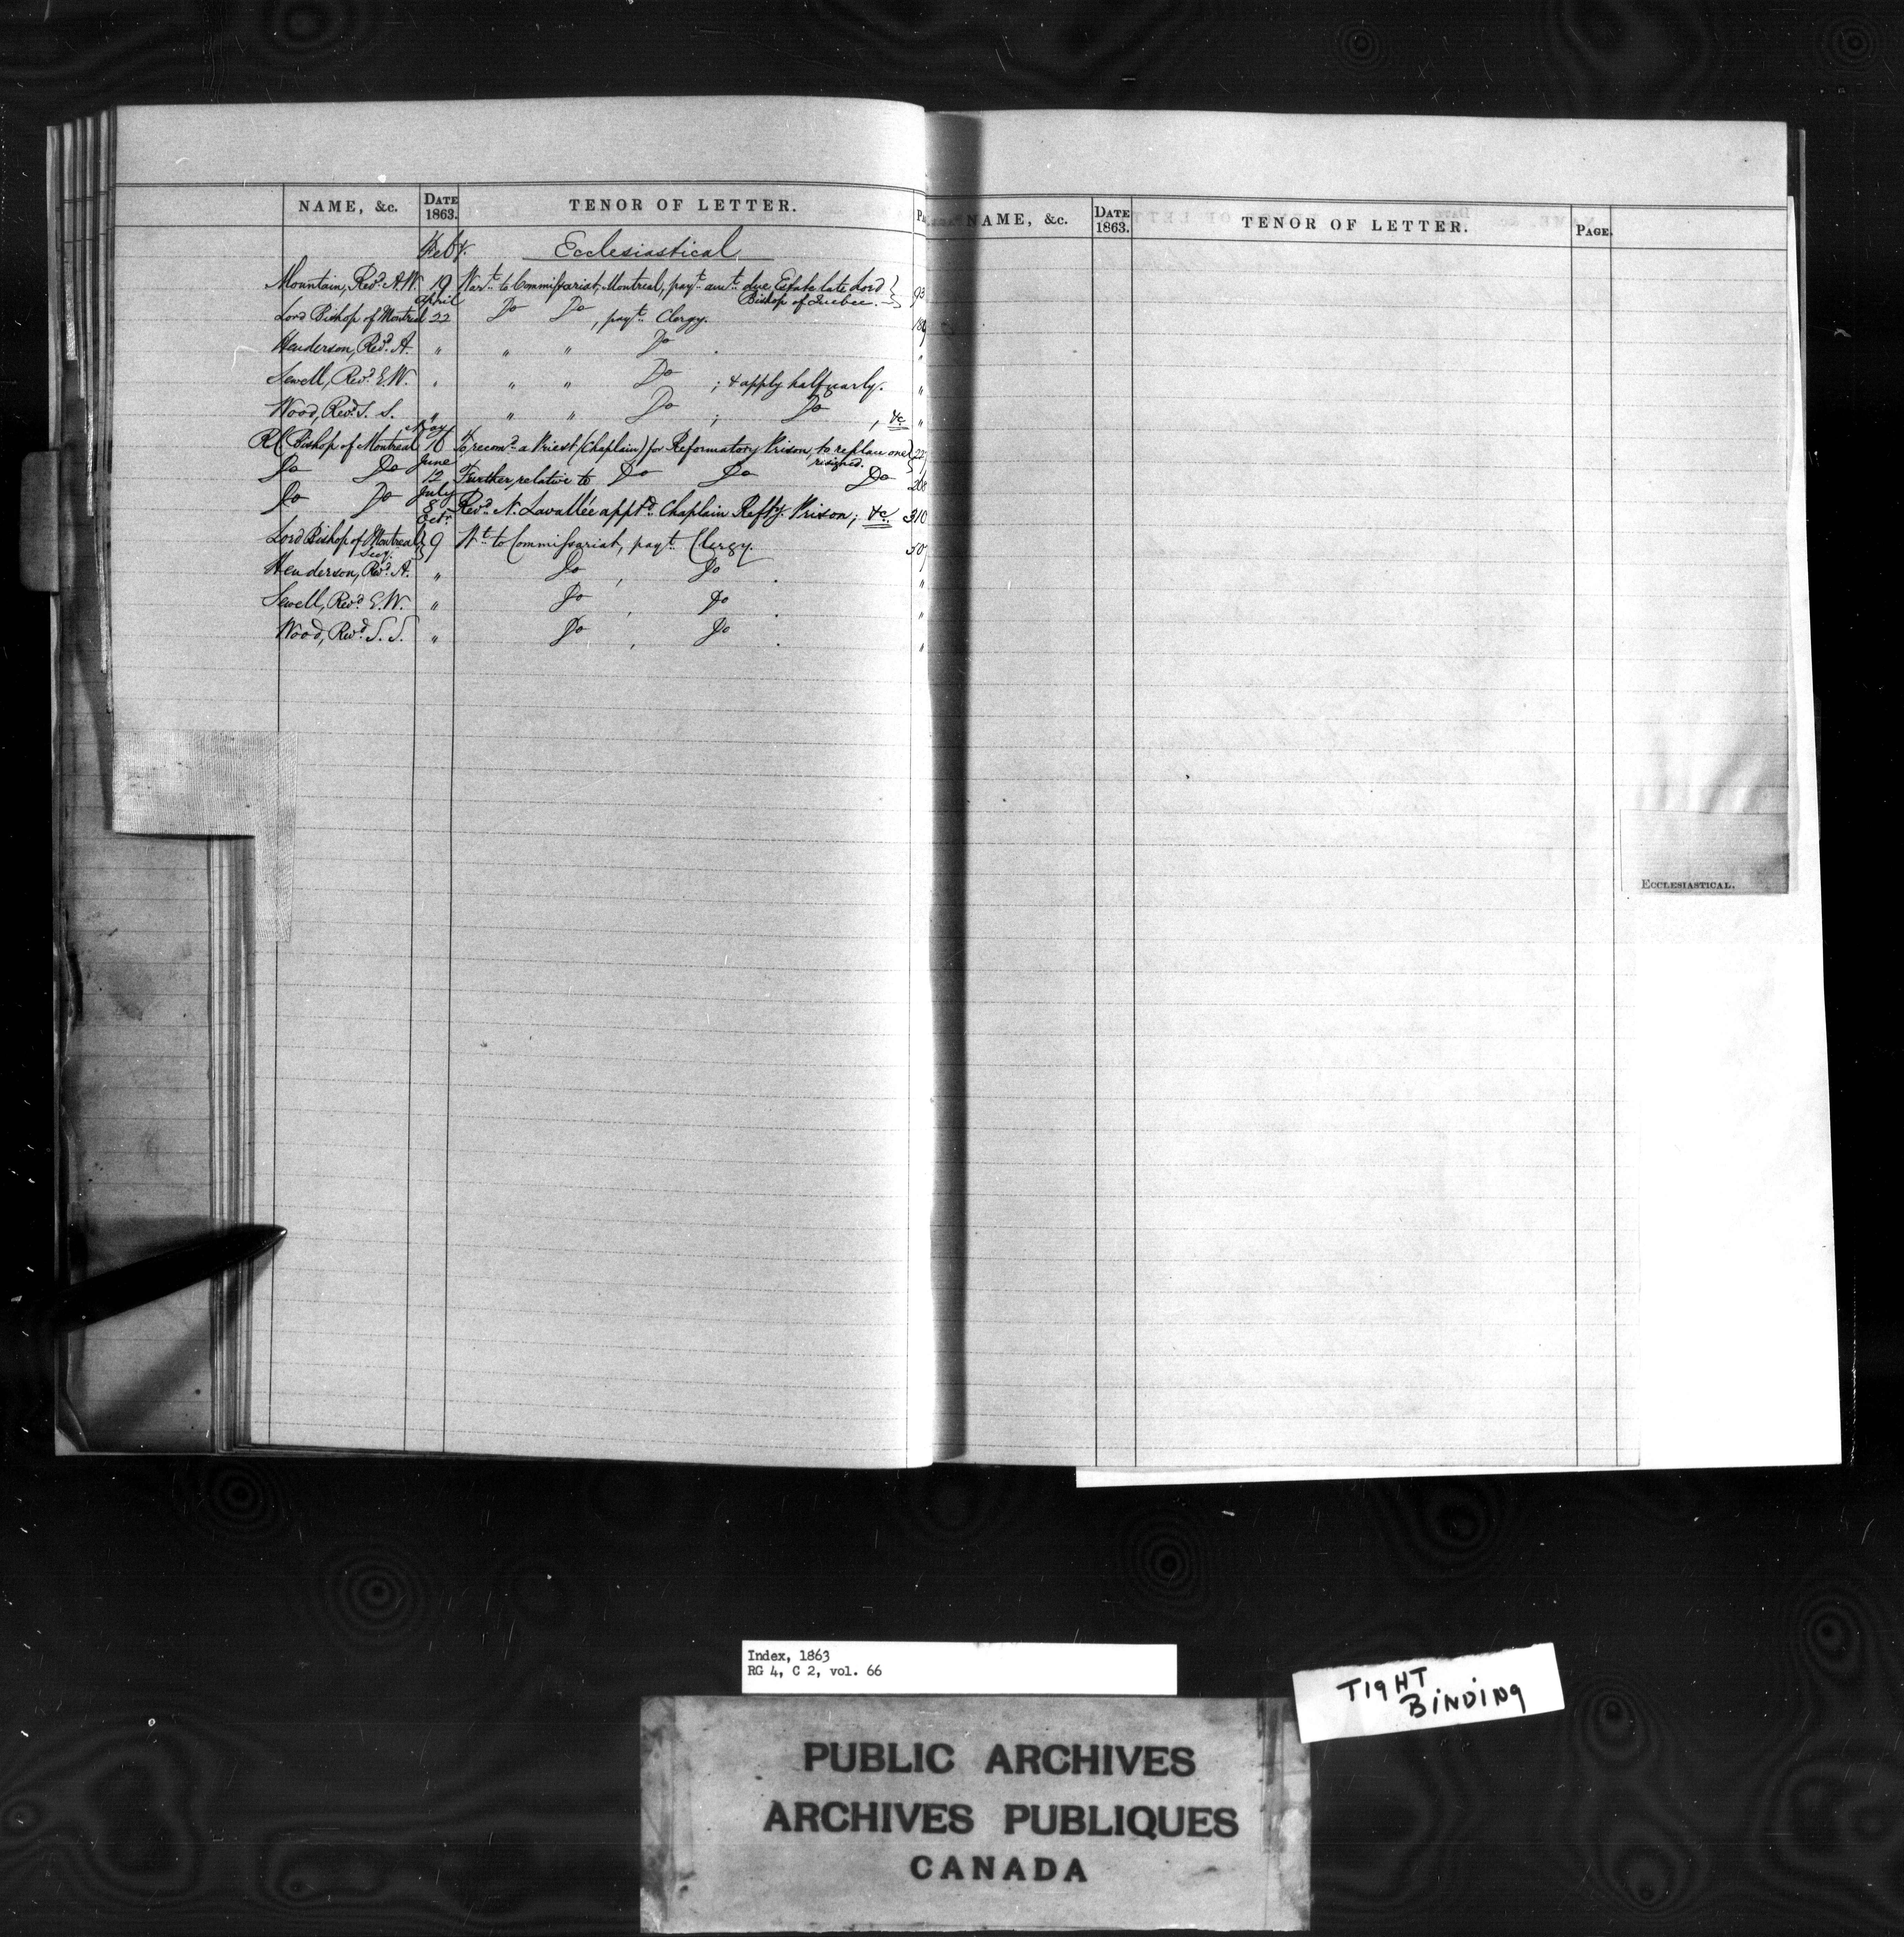 NAME, &c. DATE 1863. TENOR OF LETTER.
Feby. Ecclesiastical
Mountain, Revd. A.W. 19 Wart. to Commissariat, Montreal, payt. amt. due Estate late Lord Bishop of Quebec. 93
Lord Bishop of Montreal April 22 Do Do, payt. Clergy. 189
Henderson, Revd. A. " " " Do . "
Sewell, Revd. E.W. " " " Do ; & apply half yearly. "
Wood, Revd. S. S. " " " Do ; Do , &c "
R.C. Bishop of Montreal May 16 To recomd. a Priest (Chaplain) for Reformatory Prison, to replace one resigned.
Do Do June 12 Further relative to Do Do Do 268
Do Do July 8 Revd. N. Lavallée apptd. Chaplain Reffy. Prison; &c. 310
Lord Bishop of Montreal Octr. 9 Wt. to Commissariat, payt. Clergy. 507
Henderson, Revd. A. " Do , Do . "
Sewell, Revd. E.W. " Do , Do . "
Wood, Revd. S. S. " Do , Do . "
NAME, &c. DATE 1863. TENOR OF LETTER. PAGE.
ECCLESIASTICAL.
Index, 1863
RG 4, C 2, vol. 66
TIGHT
BINDING
PUBLIC ARCHIVES
ARCHIVES PUBLIQUES
CANADA